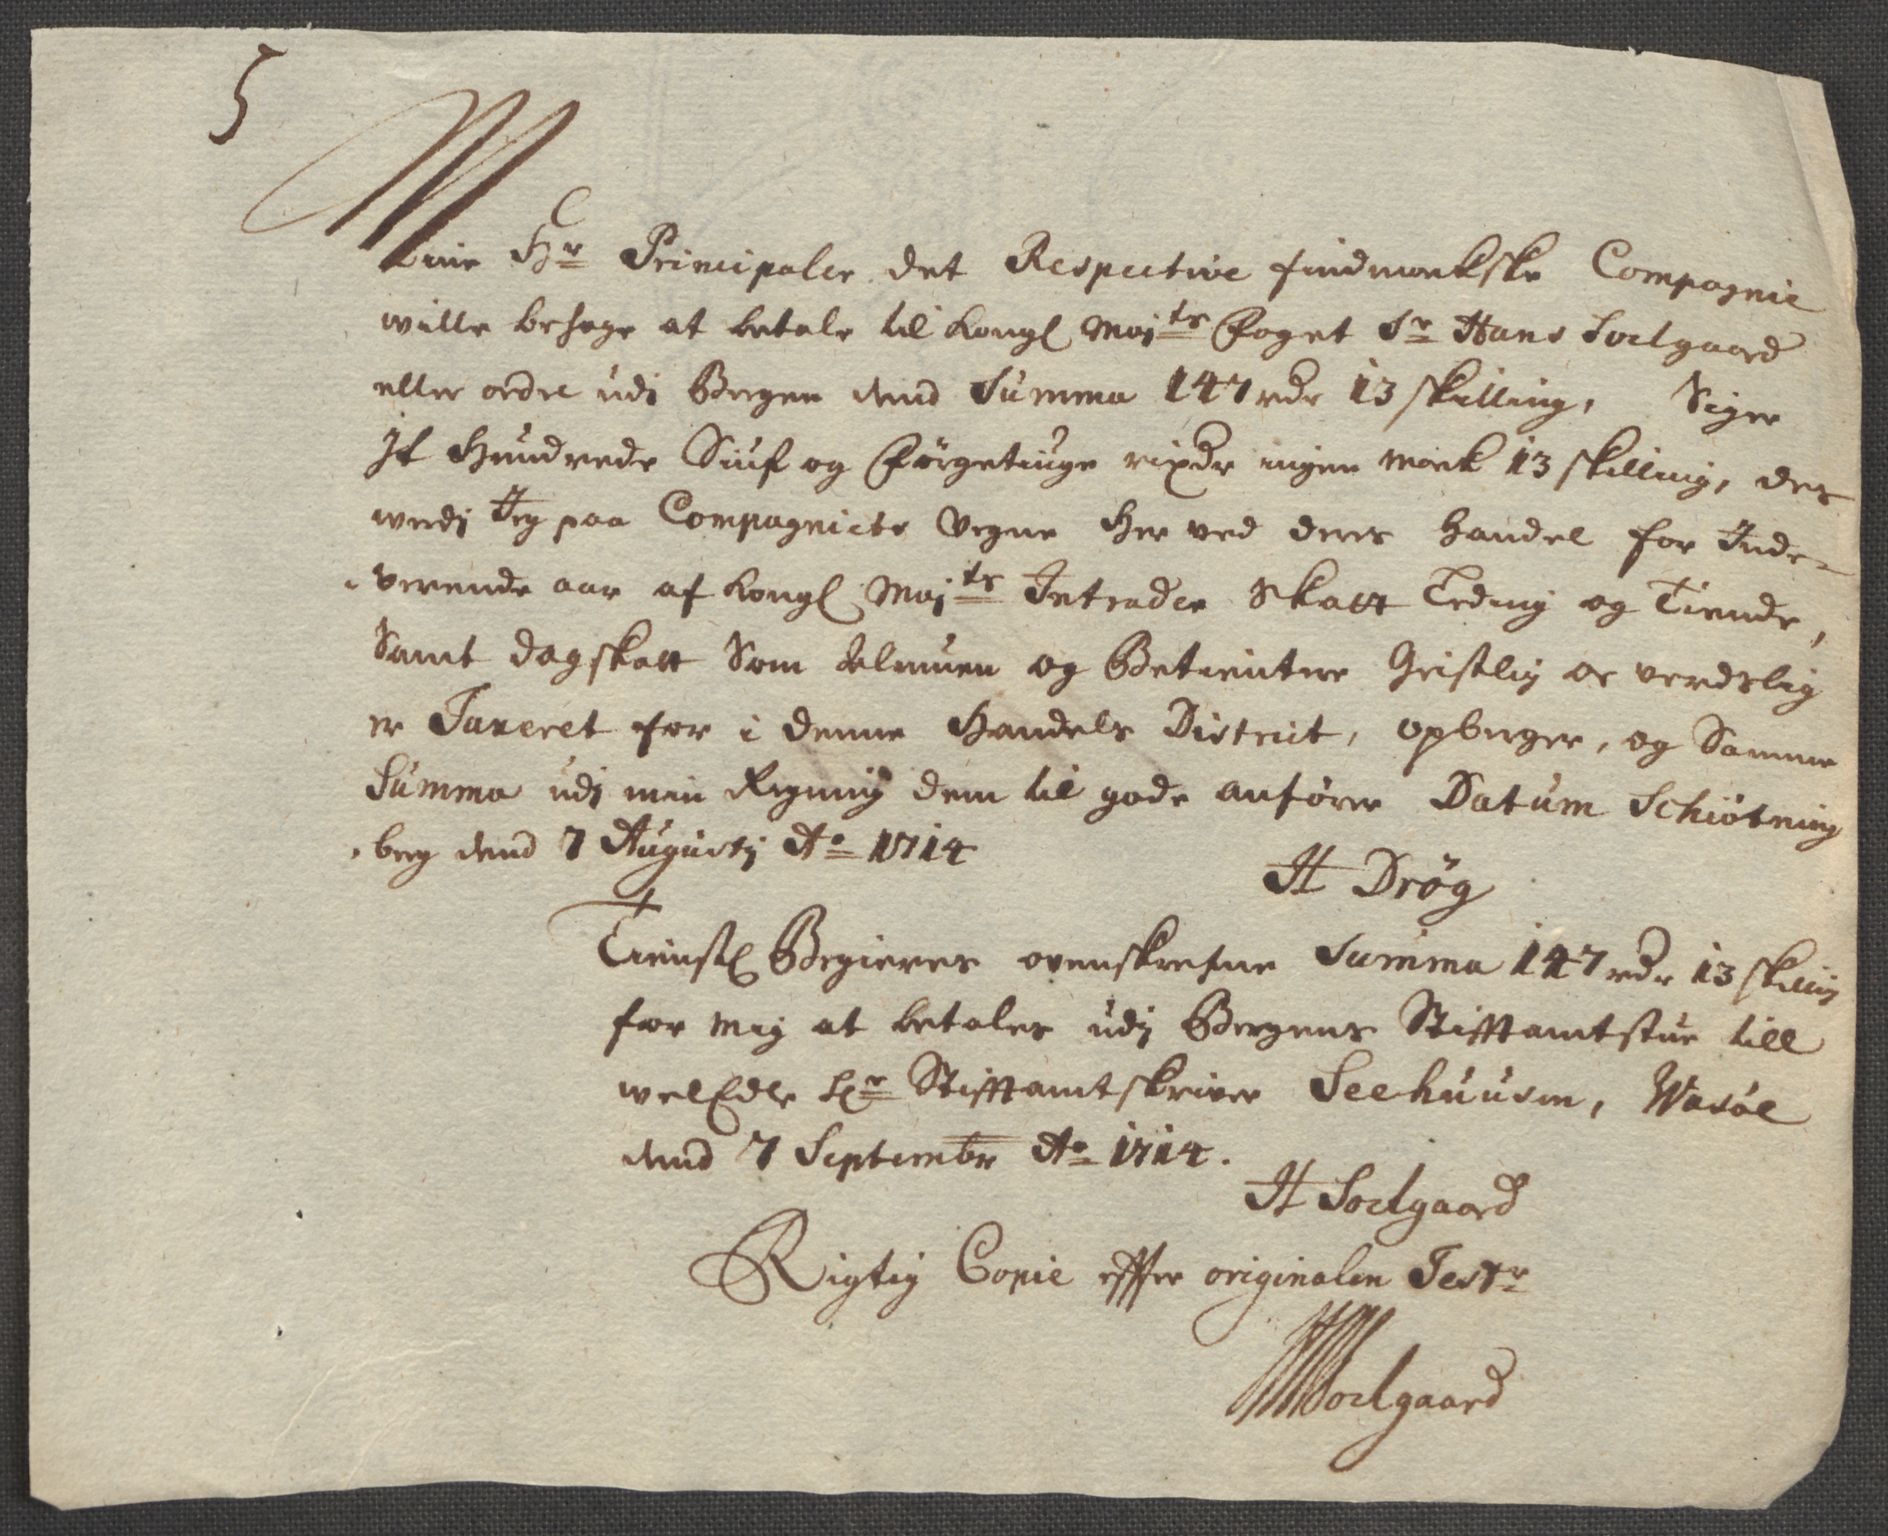 5
Mine Hr Principaler det Respective findmarkske Compagnie
wille behage at betale til Kongl Majts Foget Sr Hans Soelgaard
eller ordre udi Bergen dend Summa 147 rdr 13 skilling, Siger
It Hundrede Siuf og Förgetiuge rixdr ingen mark 13 skilling, des
werdj Jeg paa Compagniets Vegne Her ved deres Handel for Inde-
verende aar af Kongl Majts Intrader Skatt Leding og Tiende,
Samt dagskatt Som Almuen og Betientere Geistlig oc verdslig
er Taxeret for i denne Handels District, opberger, og Samme
Summa udj min Regning dem til gode anförer Datum Schiötning
berg dend 7 Augustj Ao 1714
H Drög
Tienstl Begieres ovenskrefne Summa 147 rdr 13 skillig
for mig at betales udj Bergens Stifftamtstue till
welEdle Hr Stifftamtskriver Seehuusen, Wasöe
dend 7 Septembr Ao 1714.
H Soelgaard
Rigtig Copie effter originalen Testr
HSoelgaard